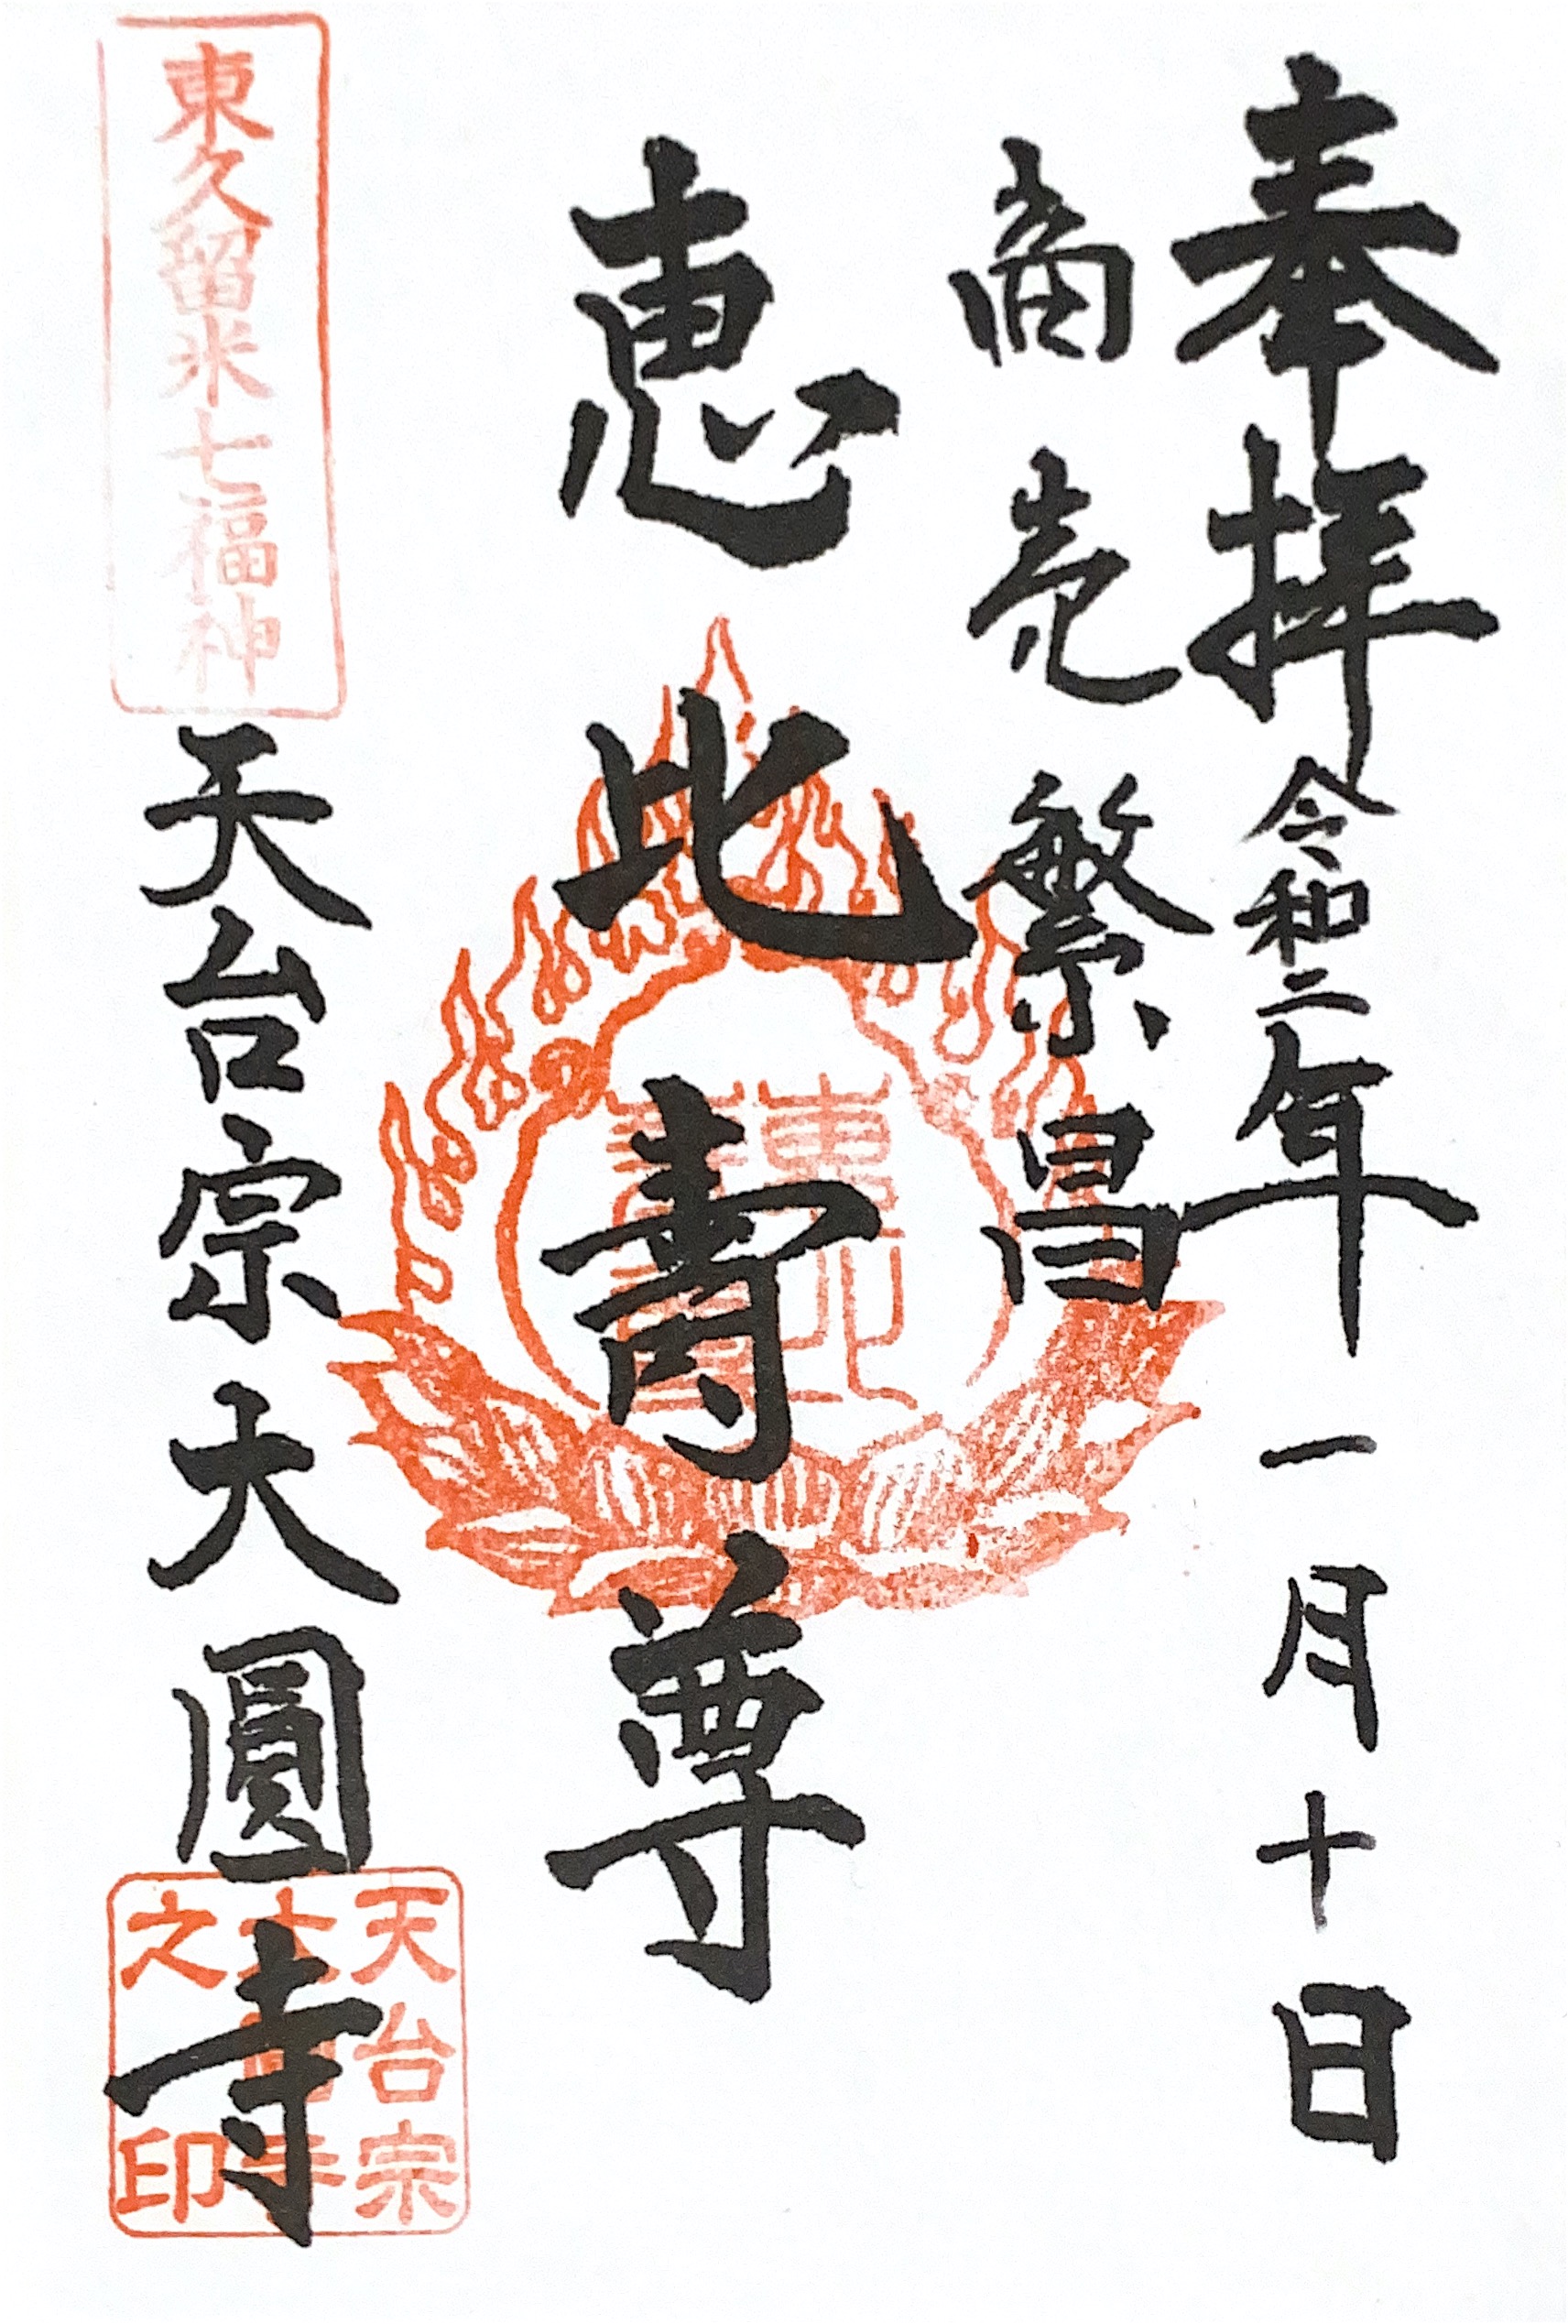 奉拝 令和二年一月十日
商売繁昌
恵比寿尊
東久留米七福神
天台宗大圓寺
恵比
天台宗
之印